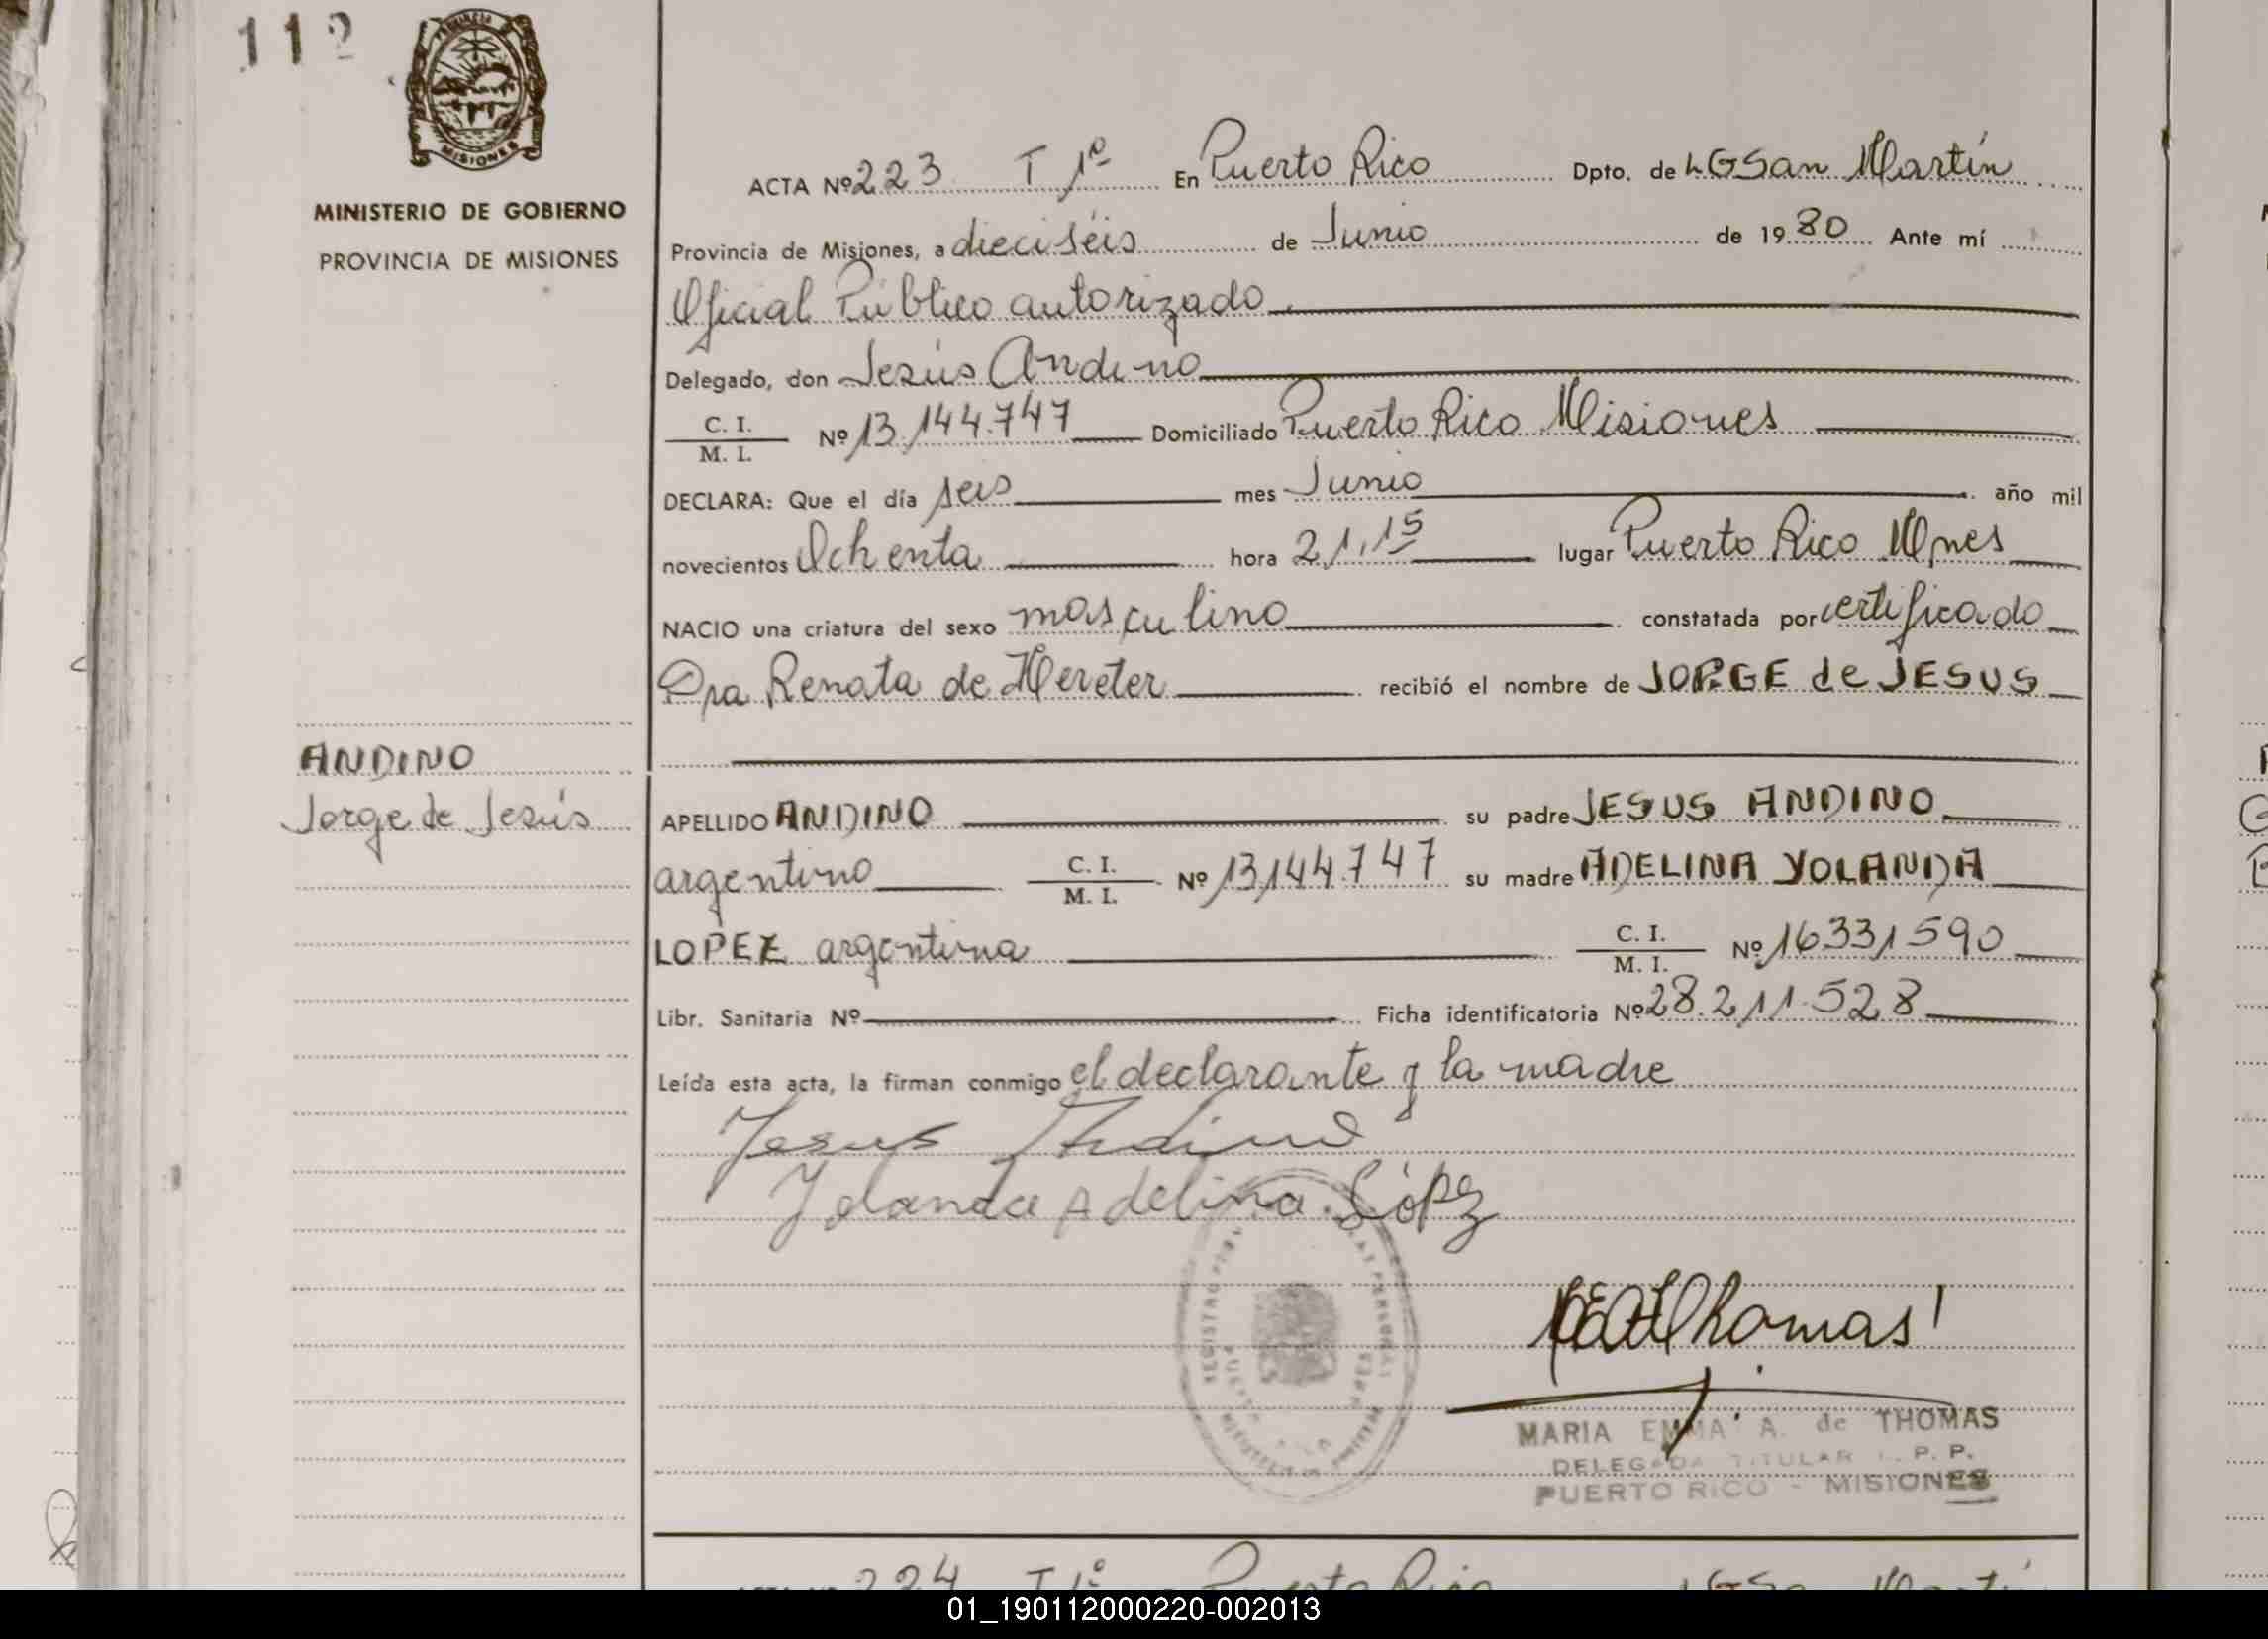 112
MISIONES
MINISTERIO DE GOBIERNO
PROVINCIA DE MISIONES
ACTA Nº 223 T 1º En Puerto Rico Dpto. de LGSan Martín
Provincia de Misiones, a dieciséis de Junio de 1980 Ante mí
Oficial Público autorizado.
Delegado, don Jesús Andino
C. I. / M. I. Nº 13.144.747 Domiciliado Puerto Rico Misiones
DECLARA: Que el día seis mes Junio año mil
novecientos Ochenta hora 21,15 lugar Puerto Rico Mnes
NACIO una criatura del sexo masculino constatada por certificado
Dra Renata de Mereter recibió el nombre de JORGE de JESUS
ANDINO
Jorge de Jesús
APELLIDO ANDINO su padre JESUS ANDINO
argentino C. I. / M. I. Nº 13144.747 su madre ADELINA YOLANDA
LOPEZ argentina C. I. / M. I. Nº 16331590
Libr. Sanitaria Nº Ficha identificatoria Nº 28.211.528
Leída esta acta, la firman conmigo el declarante y la madre
Jesus Andino
Yolanda Adelina López
Thomas
MARIA EMMA A. de THOMAS
DELEGADA TITULAR
PUERTO RICO - MISIONES
224 T 1º Puerto Rico
01_190112000220-002013